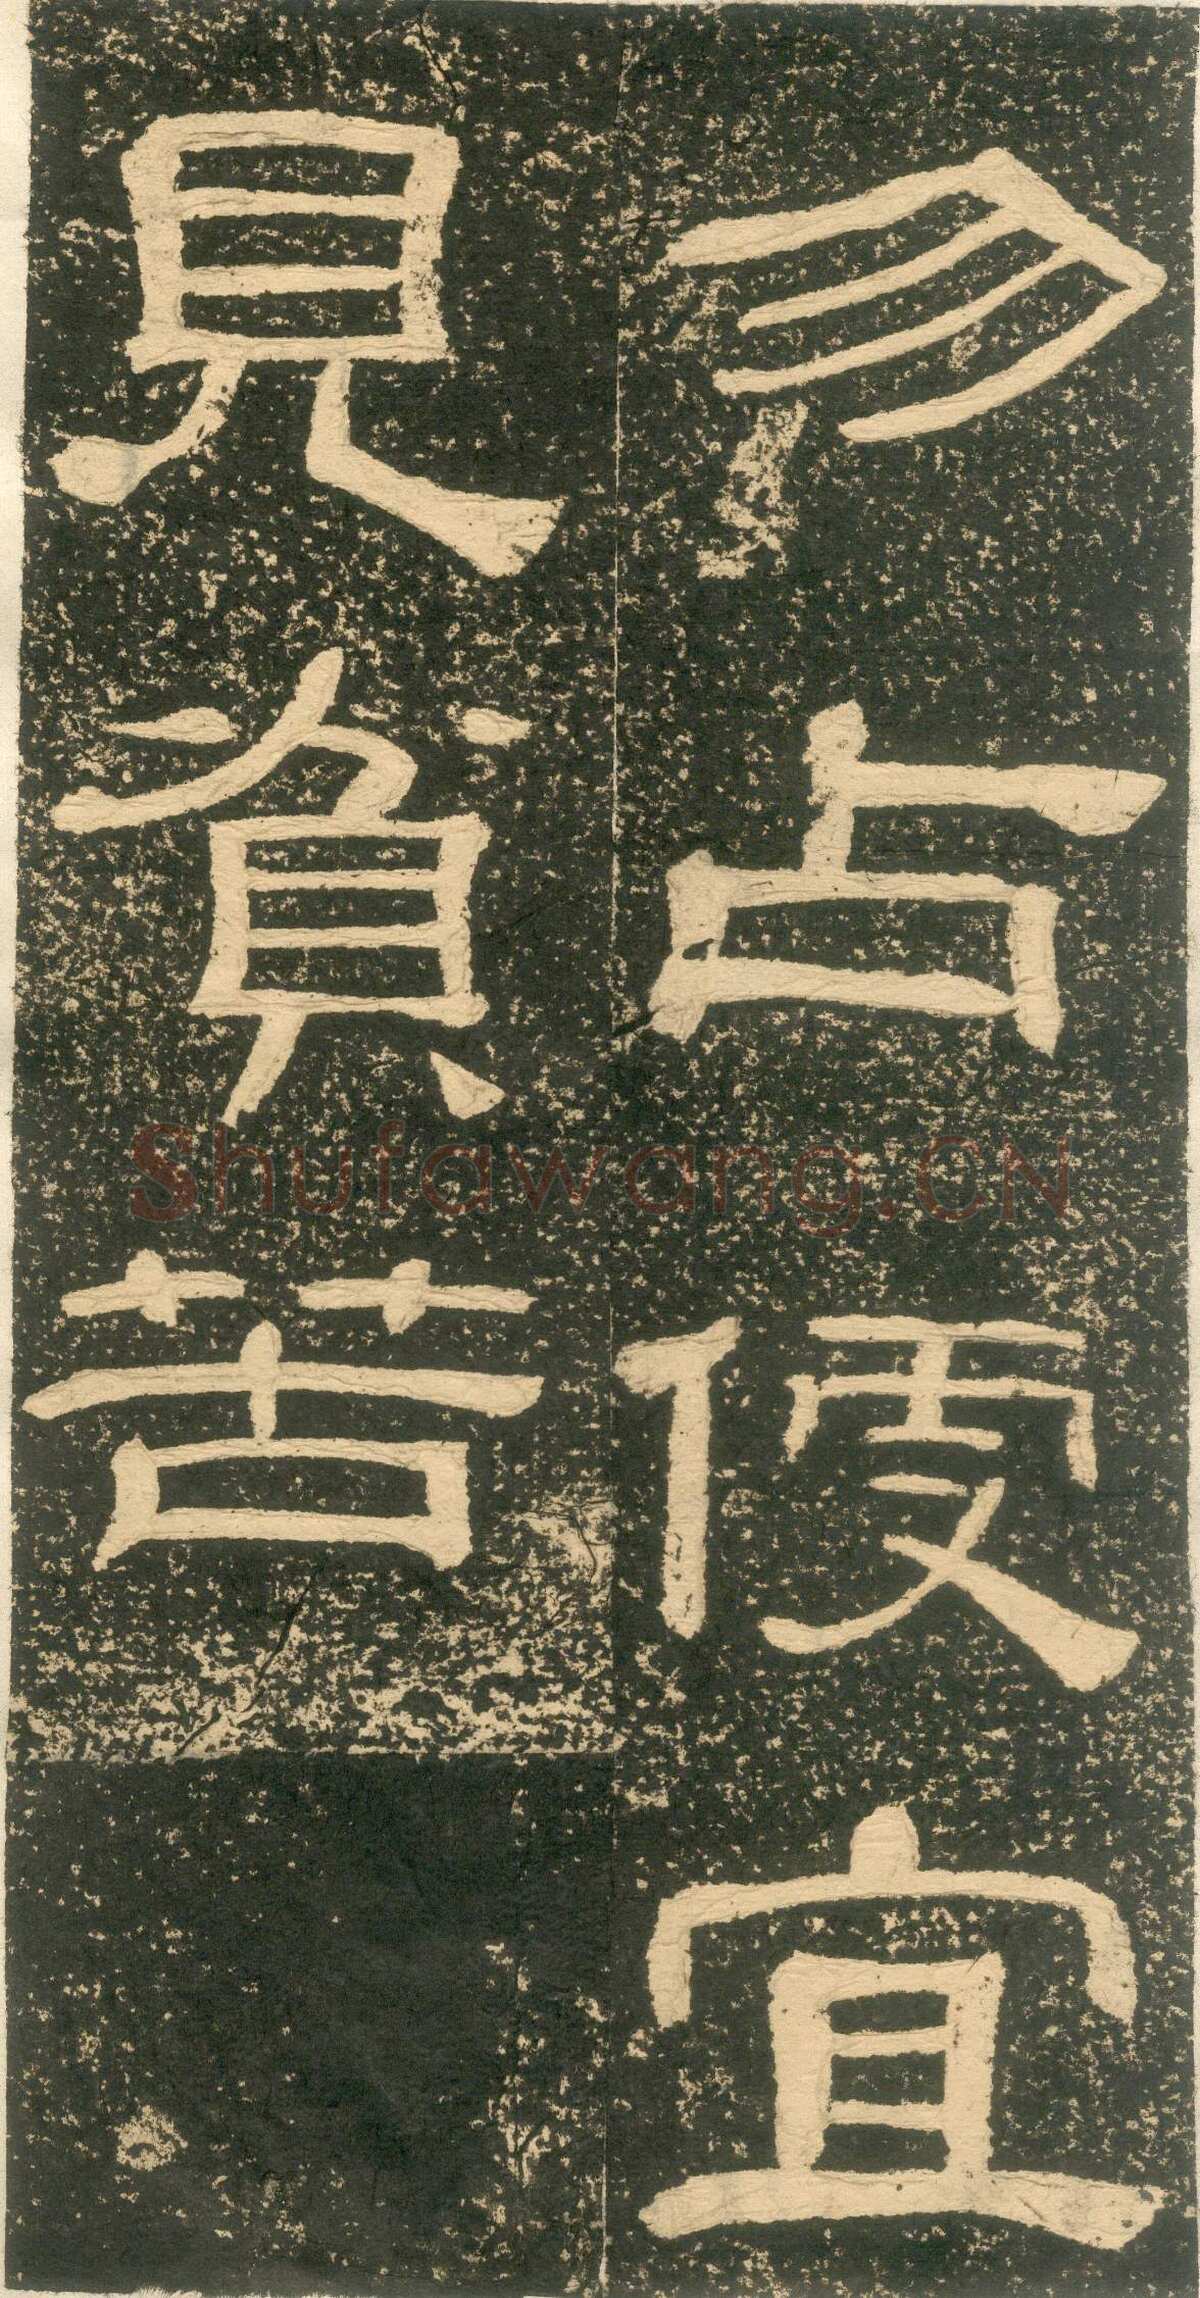 勿占便宜
見貧苦
Shufawang.CN